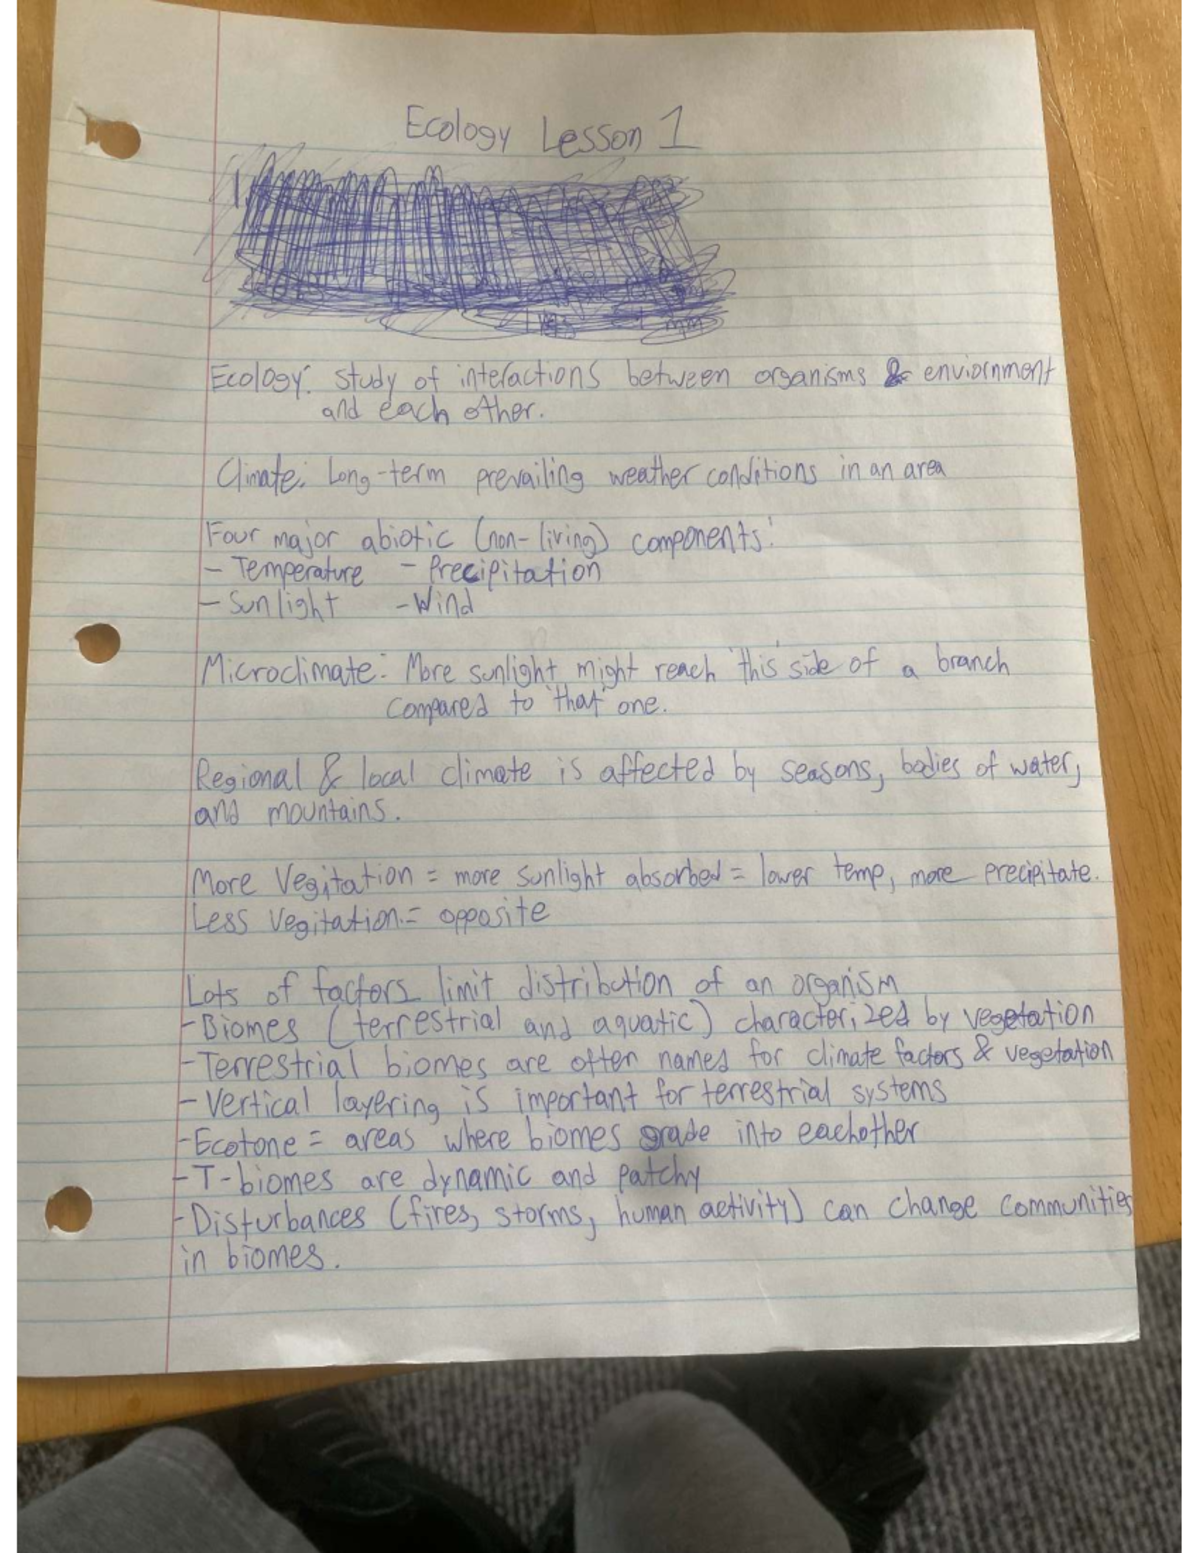 Ecology Lesson 1
Ecology: study of interactions between organisms & enviornment
and each other.
Climate: Long-term prevailing weather conditions in an area
Four major abiotic (non-living) components:
- Temperature - Precipitation
- Sunlight - Wind
Microclimate: More sunlight might reach 'this' side of a branch
compared to 'that' one.
Regional & local climate is affected by seasons, bodies of water,
and mountains.
More Vegitation = more sunlight absorbed = lower temp, more precipitate.
Less Vegitation = opposite
Lots of factors limit distribution of an organism
- Biomes (terrestrial and aquatic) characterized by vegetation
- Terrestrial biomes are often names for climate factors & vegetation
- Vertical layering is important for terrestrial systems
- Ecotone = areas where biomes grade into eachother
- T-biomes are dynamic and patchy
- Disturbances (fires, storms, human activity) can change communities
in biomes.